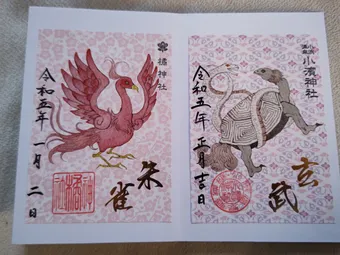 橘神社
令和五年
一月
二日
朱雀
小濱神社
令和五年
正月吉日
玄武